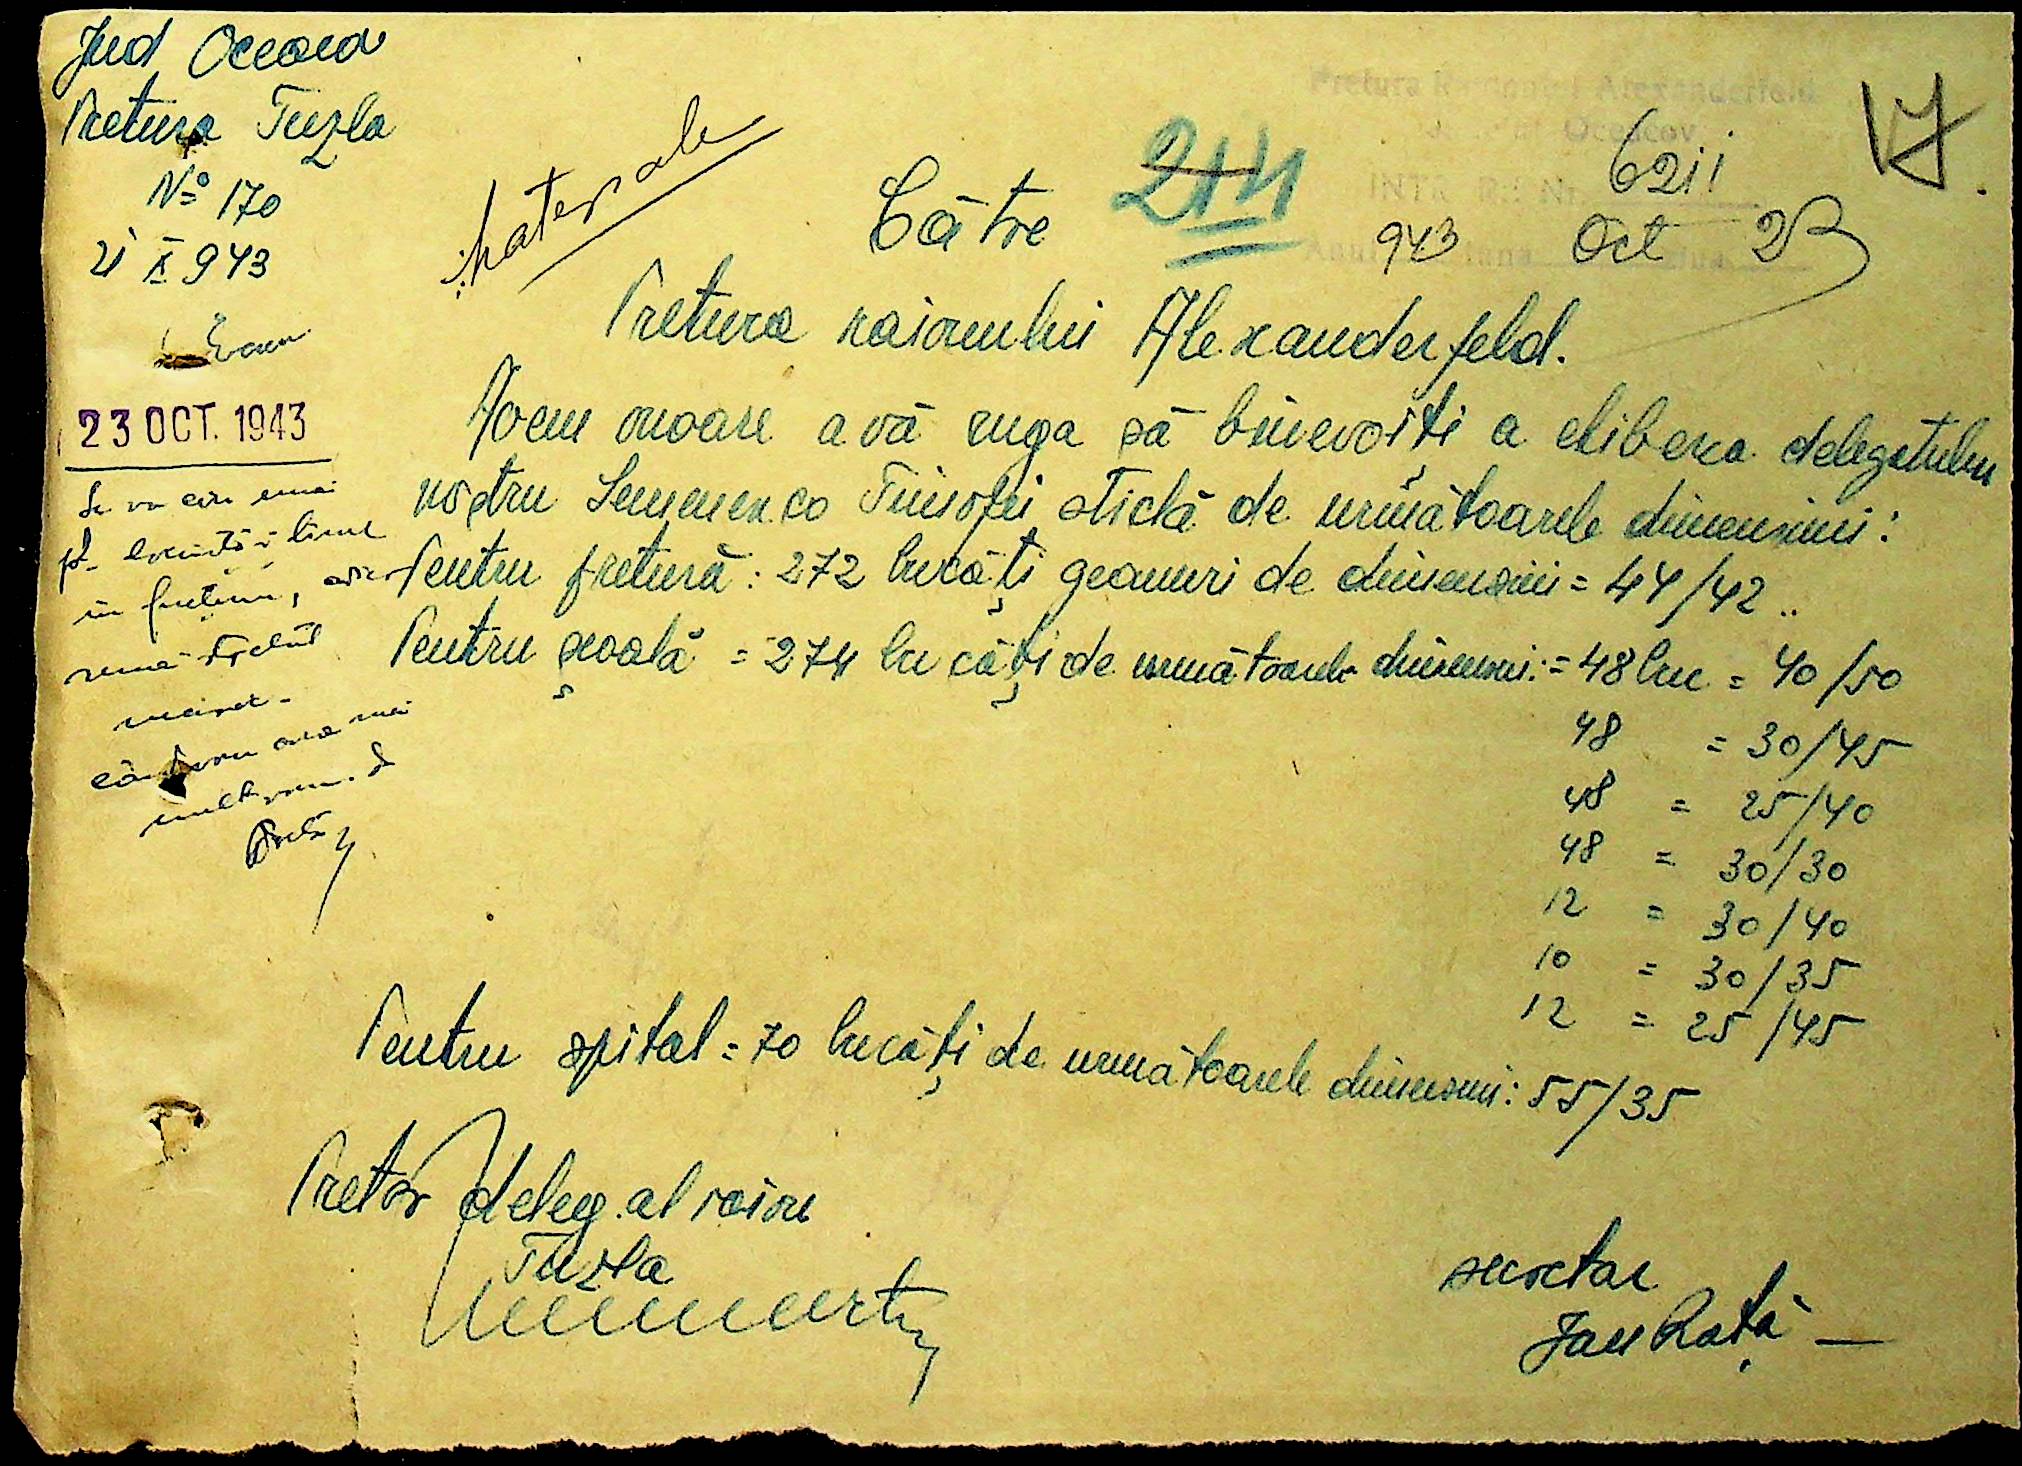 Jud Oceacov
Pretura Tuzla
No 170
21 X 943
materiale
Către
214
Pretura Raionului Alexanderfeld
Oceacov
INTR Nr. 6211
Anul 943 luna Oct ziua 23
17
Pretura raionului Alexanderfeld.
23 OCT. 1943
Avem onoare a vă ruga să binevoiți a elibera delegatului
nostru Semenenco Timofei sticlă de următoarele dimensiuni:
Pentru pretură: 272 bucăți geamuri de dimensiuni = 44/42
Pentru școală = 274 bucăți de următoarele dimensiuni: = 48 buc = 40/50
48 = 30/45
48 = 25/40
48 = 30/30
12 = 30/40
10 = 30/35
12 = 25/45
Pentru spital = 70 bucăți de următoarele dimensiuni: 55/35
Se va
în
Pretor
Pretor deleg. al raion
Tuzla
secretar
Jan Rață